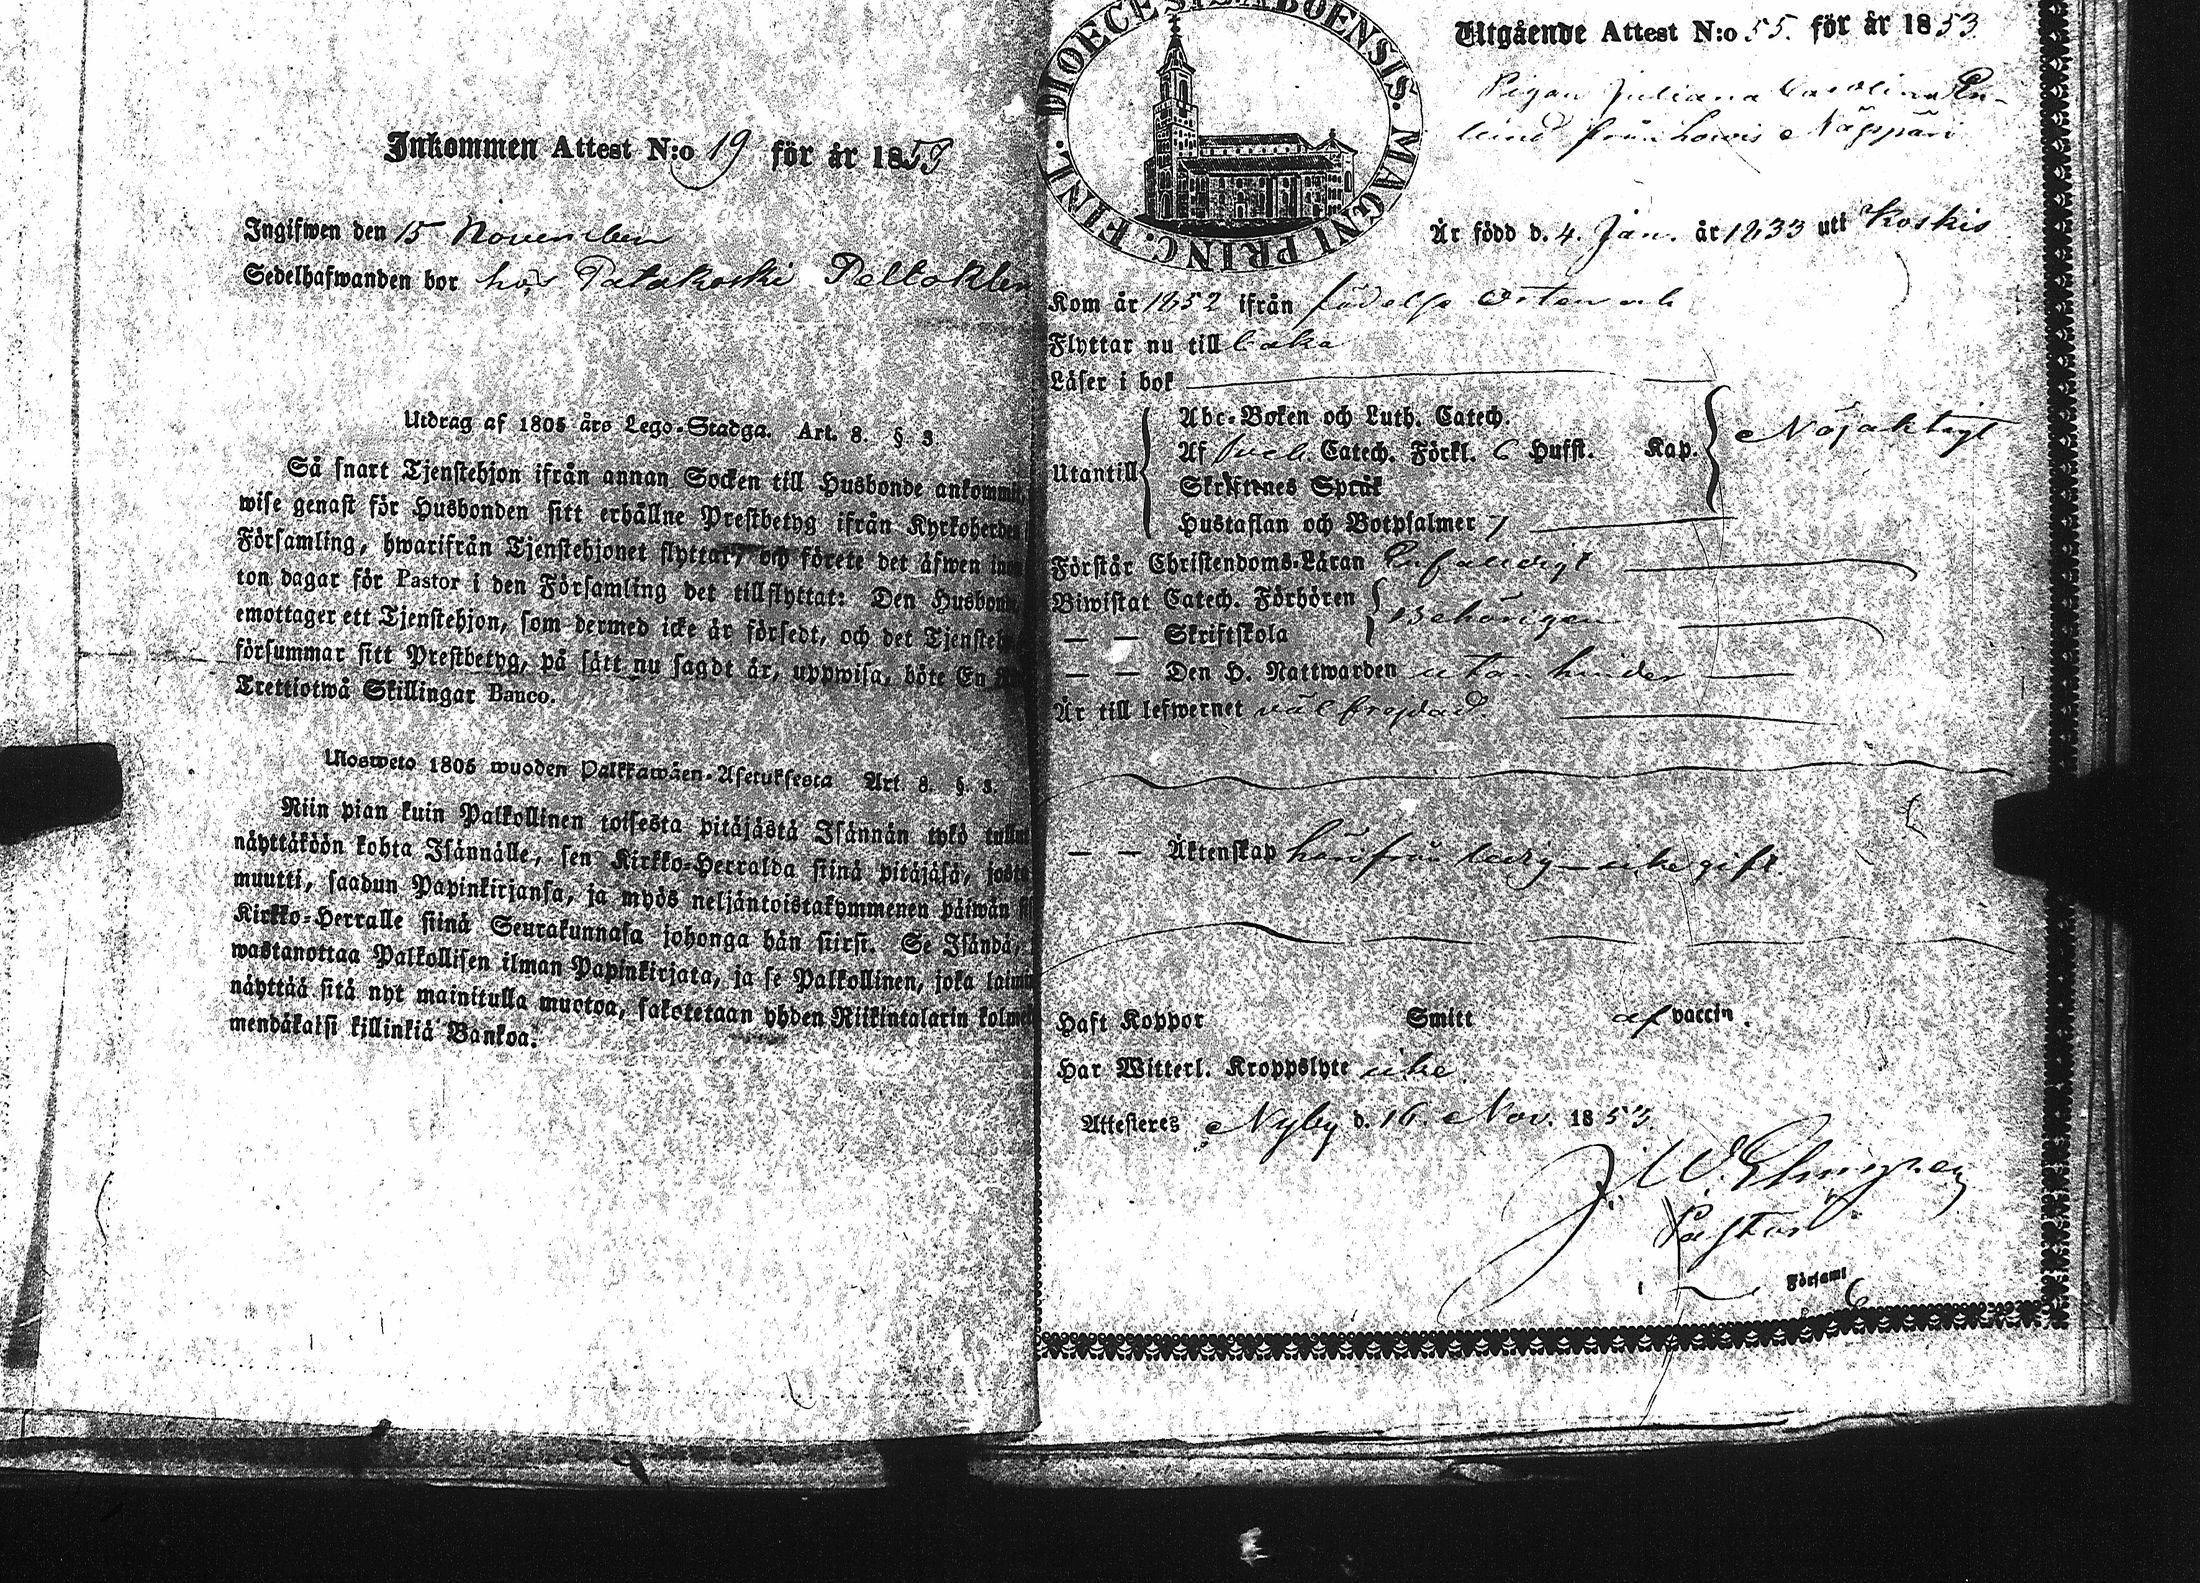 Inkommen Attest N:o 19 för år 1853
Ingifwen den 15 November
Sedelhafwanden bor hos Patakoski
Utdrag af 1805 års Lego-Stadga. Art. 8. § 3
Så snart Tjenstehjon ifrån annan Socken till Husbonde ankommit,
wise genast för Husbonden sitt erhållne Prestbetyg ifrån Kyrkoherden
Församling, hwarifrån Tjenstehjonet flyttar, och förete det äfwen inom
ton dagar för Pastor i den Församling det tillflyttat: Den Husbonde
emottager ett Tjenstehjon, som dermed icke är försedt, och det Tjenstehjon
försummar sitt Prestbetyg, på sätt nu sagdt är, uppwisa, böte En
Trettiotwå Skillingar Banco.
Ulosweto 1805 wuoden Palkkawäen-Asetuksesta Art. 8. §. 3.
Niin pian kuin Palkollinen toisesta pitäjästä Isännän tykö tullut
näyttäköön kohta Isännälle, sen Kirkko-Herralda siinä pitäjäsä, josta
muutti, saadun Papinkirjansa, ja myös neljäntoistakymmenen päiwän
Kirkko-Herralle siinä Seurakunnasa johonga hän siirsi. Se Isändä,
wastanottaa Palkollisen ilman Papinkirjata, ja se Palkollinen, joka
näyttää sitä nyt mainitulla muotoa, sakotetaan yhden Riikintalarin
mendäkaksi killinkiä Bankoa.
DIOECESIS ABOENSIS. MAGNI PRINC. FINL.
Utgående Attest N:o 55. för år 1853
Pigan Juliana Carolina En-
lund från Lowis Näppäri
Är född d. 4. Jan. år 1833 uti Koskis
Kom år 1852 ifrån födelse Orten och
Flyttar nu till baka
Läser i bok
Utantill
Abc-Boken och Luth. Catech.
Af Sveb. Catech. Förkl. 6 Hufst. Kap.
Skriftenes Språk
Hustaflan och Botpsalmer 7
Nöjaktigt
Förstår Christendoms-Läran Enfaldigt
Biwistat Catech. Förhören
— — Skriftskola
Behörigen
— — Den H. Nattwarden utan hinder
Är till lefwernet väl frejdad.
— — Äktenskap härifrån ledig – icke gift.
Haft Koppor Smitt af vaccin.
Har Witterl. Kroppslyte icke
Attesteres Nyby d. 16. Nov. 1853.
J. W. Elmgren
Pastor
Församl